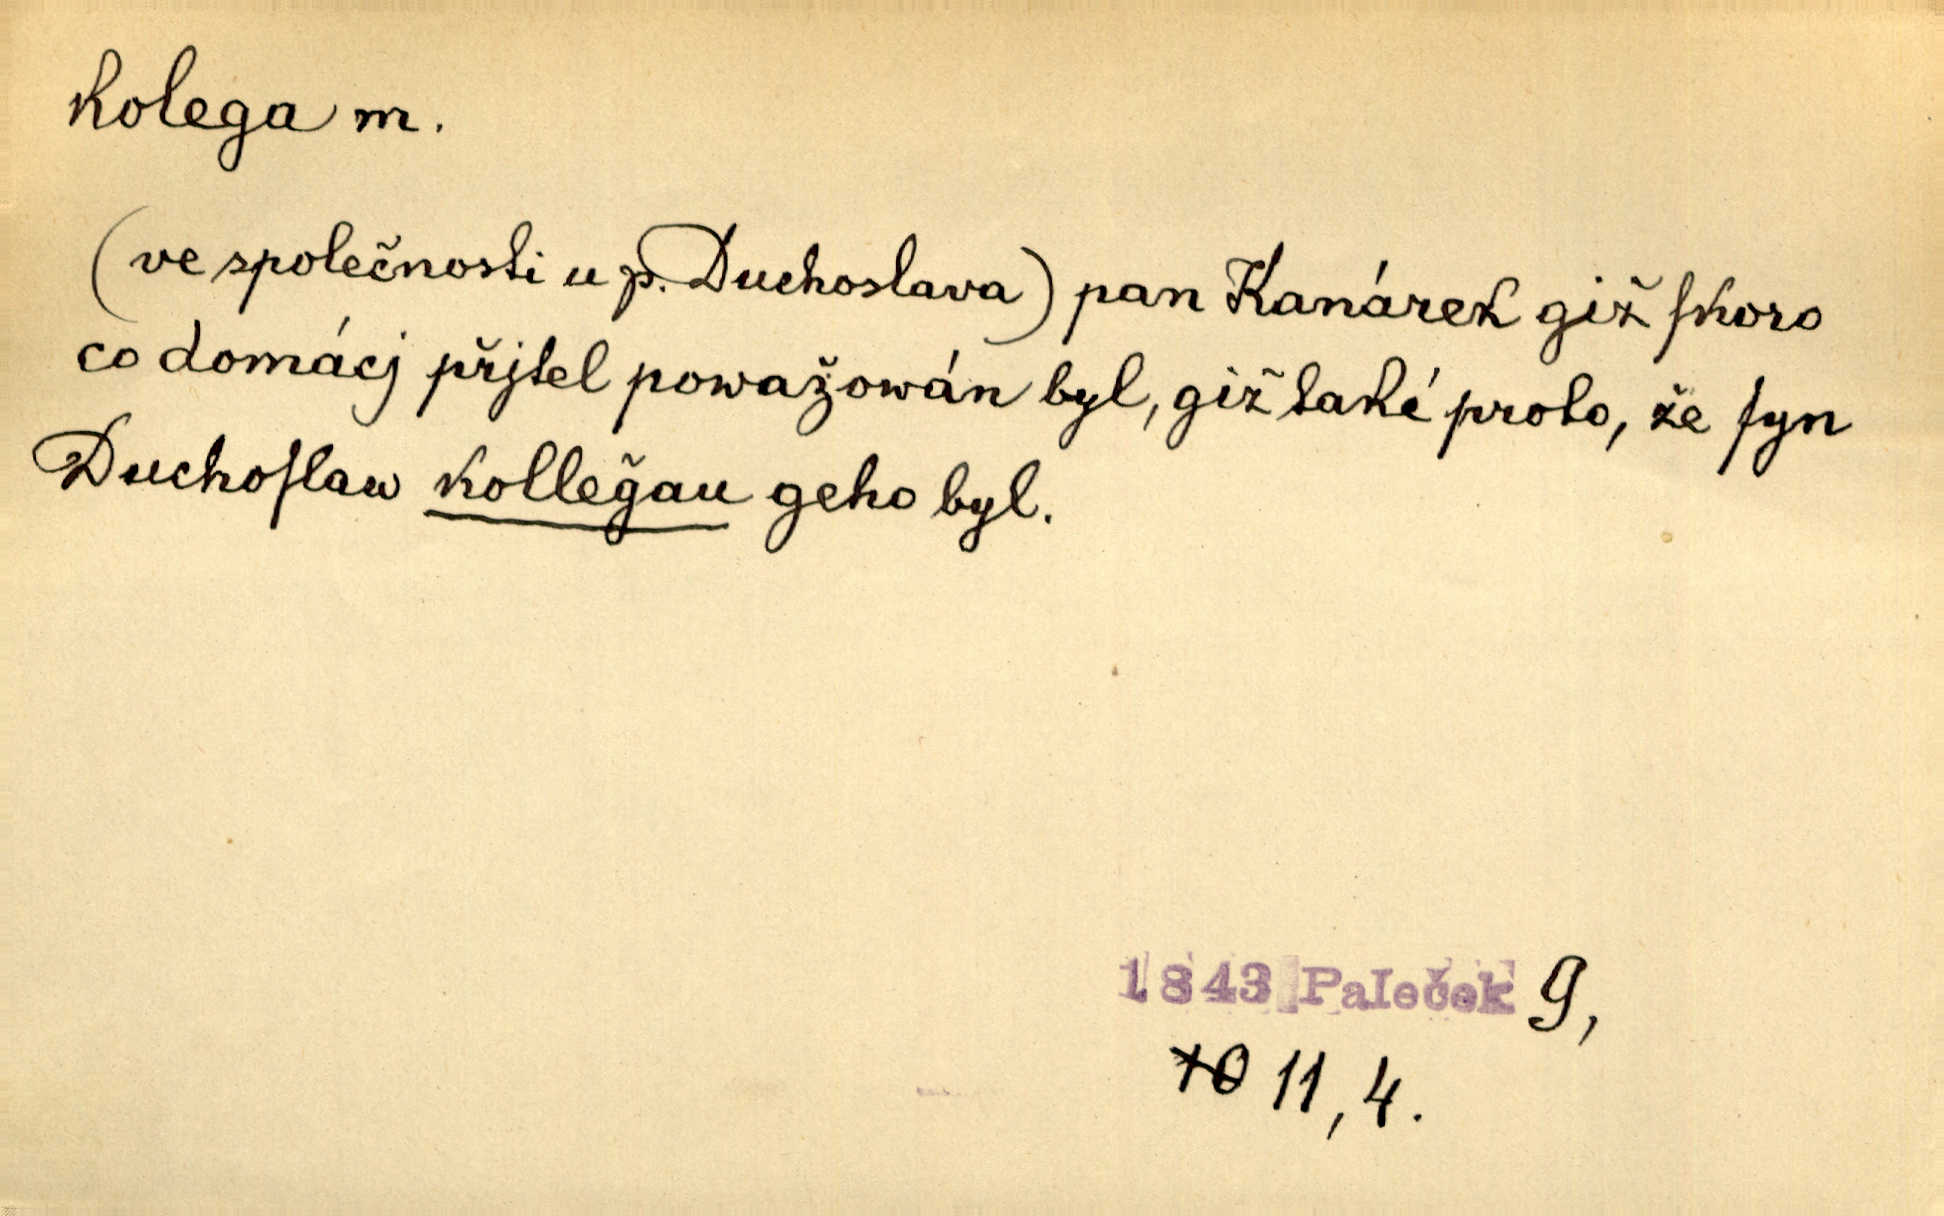 kolega m.
(ve společnosti u p. Duchoslava) pan Kanárek giž ſkoro
co domácj přjtel powažowán byl, giž také proto, že ſyn
Duchoſlaw kolleǧau geho byl.
1843 Paleček 9,
10 11, 4.